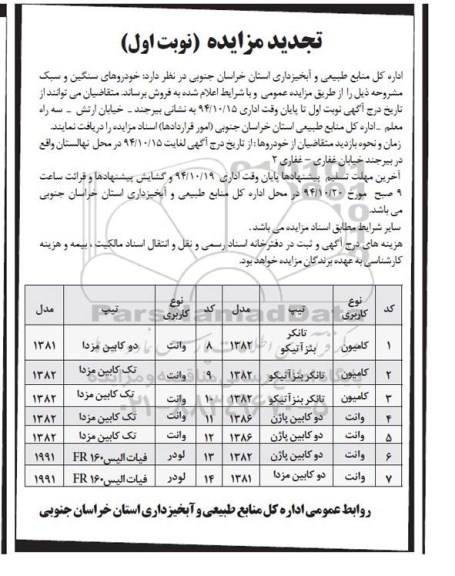 تجدید مزایده (نوبت اول)
اداره کل منابع طبیعی و آبخیزداری استان خراسان جنوبی در نظر دارد: خودروهای سنگین و سبک
مشروحه ذیل را از طریق مزایده عمومی و با شرایط اعلام شده به فروش برساند. متقاضیان می توانند از
تاریخ درج آگهی نوبت اول تا پایان وقت اداری ۹۴/۱۰/۱۵ به نشانی بیرجند ـ خیابان ارتش ـ سه راه
معلم ـ اداره کل منابع طبیعی استان خراسان جنوبی (امور قراردادها) اسناد مزایده را دریافت نمایند.
زمان و نحوه بازدید متقاضیان از خودروها: از تاریخ درج آگهی لغایت ۹۴/۱۰/۱۵ در محل نهالستان واقع
در بیرجند خیابان غفاری – غفاری ۲
آخرین مهلت تسلیم پیشنهادها پایان وقت اداری ۹۴/۱۰/۱۹ و گشایش پیشنهادها و قرائت ساعت
۹ صبح مورخ ۹۴/۱۰/۲۰ در محل اداره کل منابع طبیعی و آبخیزداری استان خراسان جنوبی
می باشد.
سایر شرایط مطابق اسناد مزایده می باشد.
هزینه های درج آگهی و ثبت در دفترخانه اسناد رسمی و نقل و انتقال اسناد مالکیت ، بیمه و هزینه
کارشناسی به عهده برندگان مزایده خواهد بود.
کد نوع کاربری تیپ مدل کد نوع کاربری تیپ مدل
۱ کامیون تانکر بنز آتیکو ۱۳۸۲ ۸ وانت دو کابین مزدا ۱۳۸۱
۲ کامیون تانکر بنز آتیکو ۱۳۸۲ ۹ وانت تک کابین مزدا ۱۳۸۲
۳ کامیون تانکر بنز آتیکو ۱۳۸۲ ۱۰ وانت تک کابین مزدا ۱۳۸۲
۴ وانت دو کابین پاژن ۱۳۸۶ ۱۱ وانت تک کابین مزدا ۱۳۸۲
۵ وانت دو کابین پاژن ۱۳۸۶ ۱۲ وانت تک کابین مزدا ۱۳۸۲
۶ وانت دو کابین پاژن ۱۳۸۲ ۱۳ لودر فیات الیس FR ۱۶۰ ۱۹۹۱
۷ وانت دو کابین مزدا ۱۳۸۱ ۱۴ لودر فیات الیس FR ۱۶۰ ۱۹۹۱
روابط عمومی اداره کل منابع طبیعی و آبخیزداری استان خراسان جنوبی